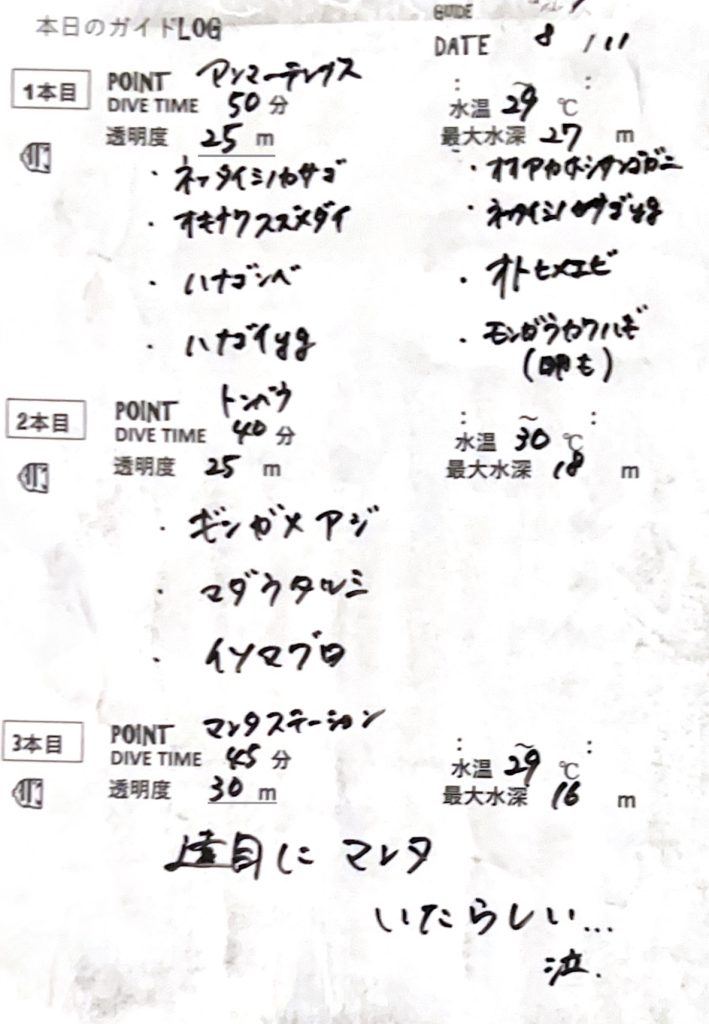 本日のガイドLOG
GUIDE
DATE 8/11
1本目
POINT アンマーテングス
DIVE TIME 50分
: ~ :
水温 29℃
透明度 25m
最大水深 27m
・ネッタイミノカサゴ
・オキナワスズメダイ
・ハナゴンベ
・ハナゴイyg
・オオアカホシサンゴガニ
・ネッタイミノカサゴyg
・オトヒメエビ
・モンガラカワハギ
(卵も)
2本目
POINT トンバラ
DIVE TIME 40分
: ~ :
水温 30℃
透明度 25m
最大水深 18m
・ギンガメアジ
・マダラタルミ
・イソマグロ
3本目
POINT マンタステーション
DIVE TIME 45分
: ~ :
水温 29℃
透明度 30m
最大水深 16m
目にマンタ
いたらしい...
泣.